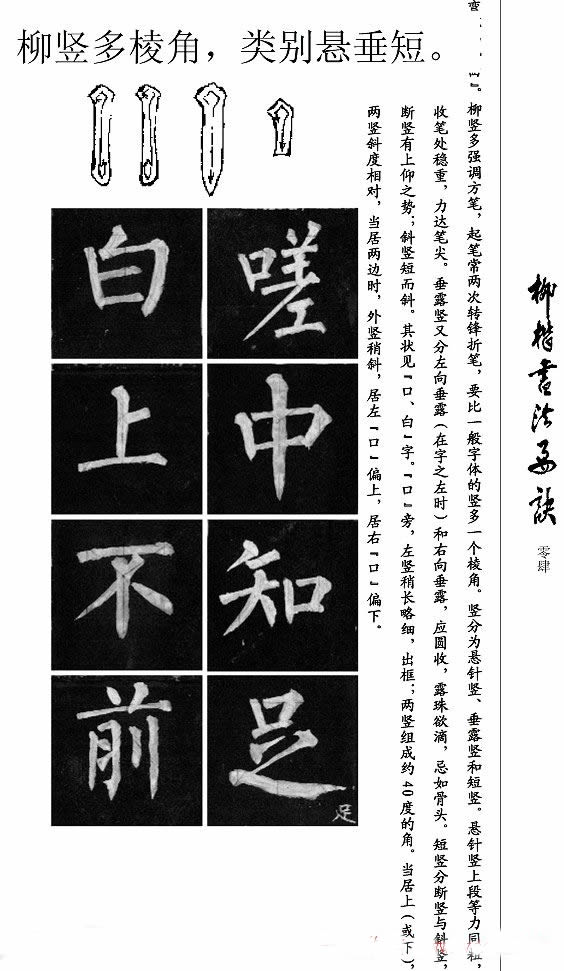 柳竖多棱角，类别悬垂短。
柳楷书法要诀
零肆
柳竖多强调方笔，起笔常两次转锋折笔，要比一般字体的竖多一个棱角。竖分为悬针竖、垂露竖和短竖。悬针竖上段等力同粗，
收笔处稳重，力达笔尖。垂露竖又分左向垂露（在字之左时）和右向垂露，应圆收，露珠欲滴，忌如骨头。短竖分断竖与斜竖，
断竖有上仰之势；斜竖短而斜。其状见『口、白』字。『口』旁，左竖稍长略细，出框；两竖组成约40度的角。当居上（或下），
两竖斜度相对，当居两边时，外竖稍斜，居左『口』偏上，居右『口』偏下。
嗟
中
知
足
足
白
上
不
前